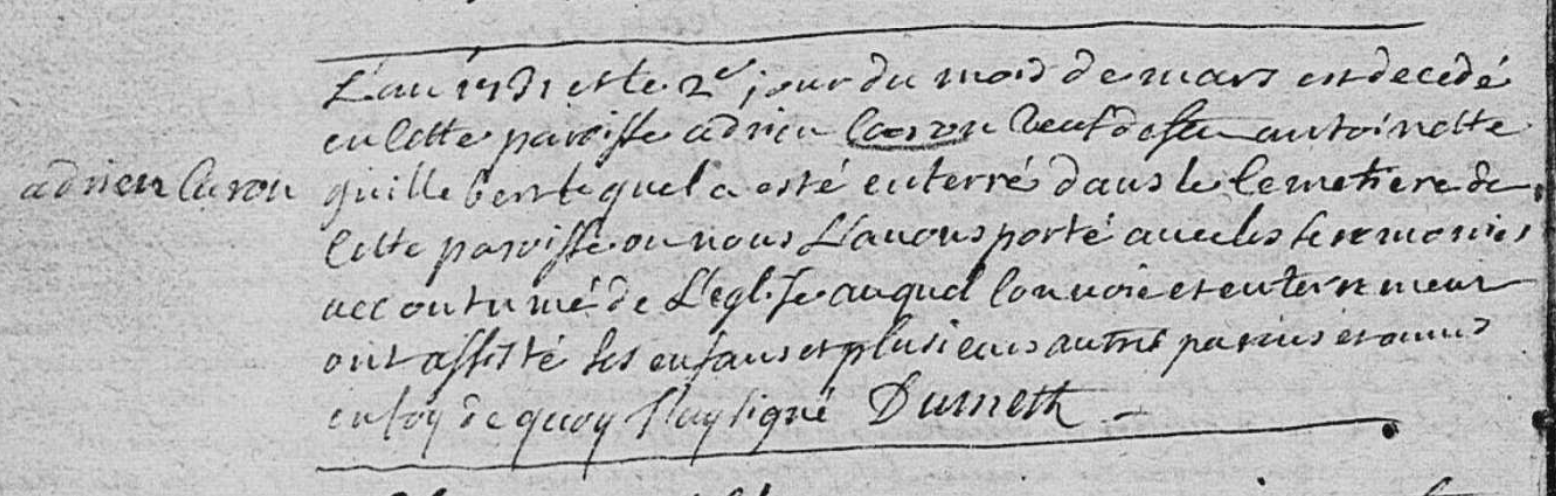 L'an 1731 et le 2e jour du mois de mars est decedé
en cette paroisse adrien Caron veuf de feu antoinette
adrien Caron
guillebert lequel a esté enterré dans le Cemetiere de
Cette paroisse ou nous L'avons porté avec les seremonies
accoutumé de L'eglise auquel convoie et enterrement
ont assisté ses enfans et plusieurs autres parens et amis
en foy de quoy J'ay signé Dumeth